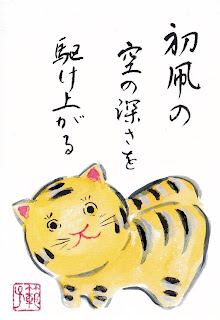 初凧の
空の深さを
駆け上がる